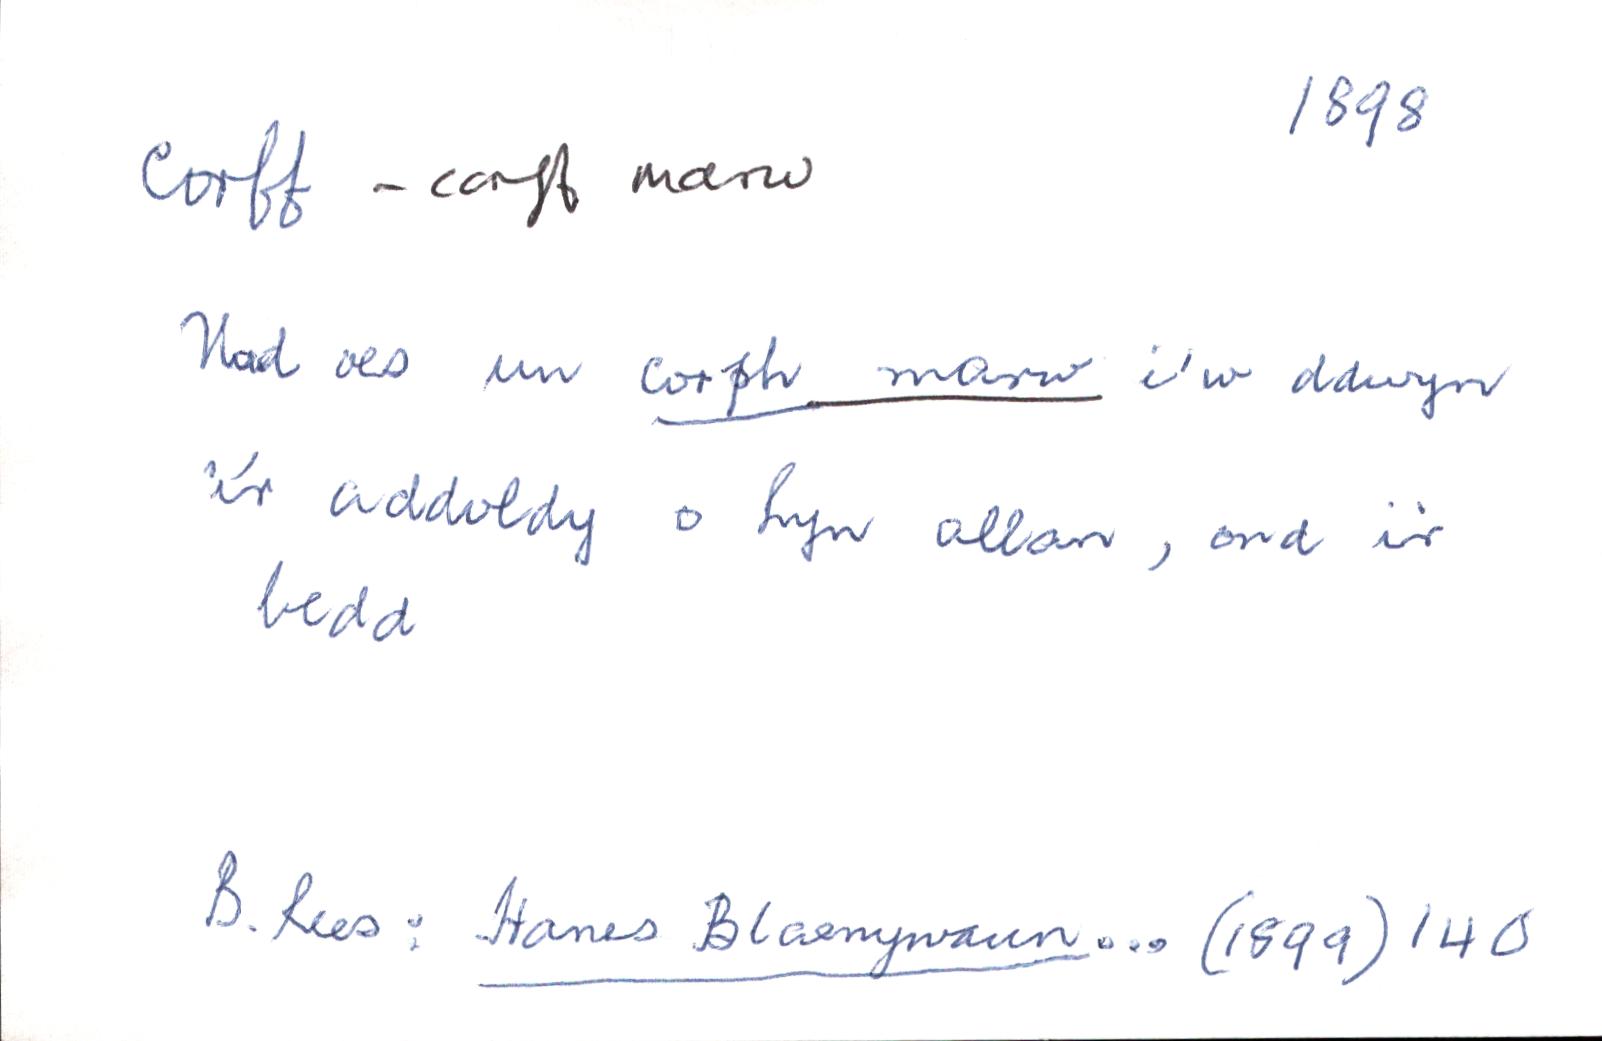 1898
Corff - corff marw
Nad oes un corph marw i'w ddwyn
i'r addoldy o hyn allan, ond i'r
bedd
B. Rees: Hanes Blaenywaun... (1899) 140